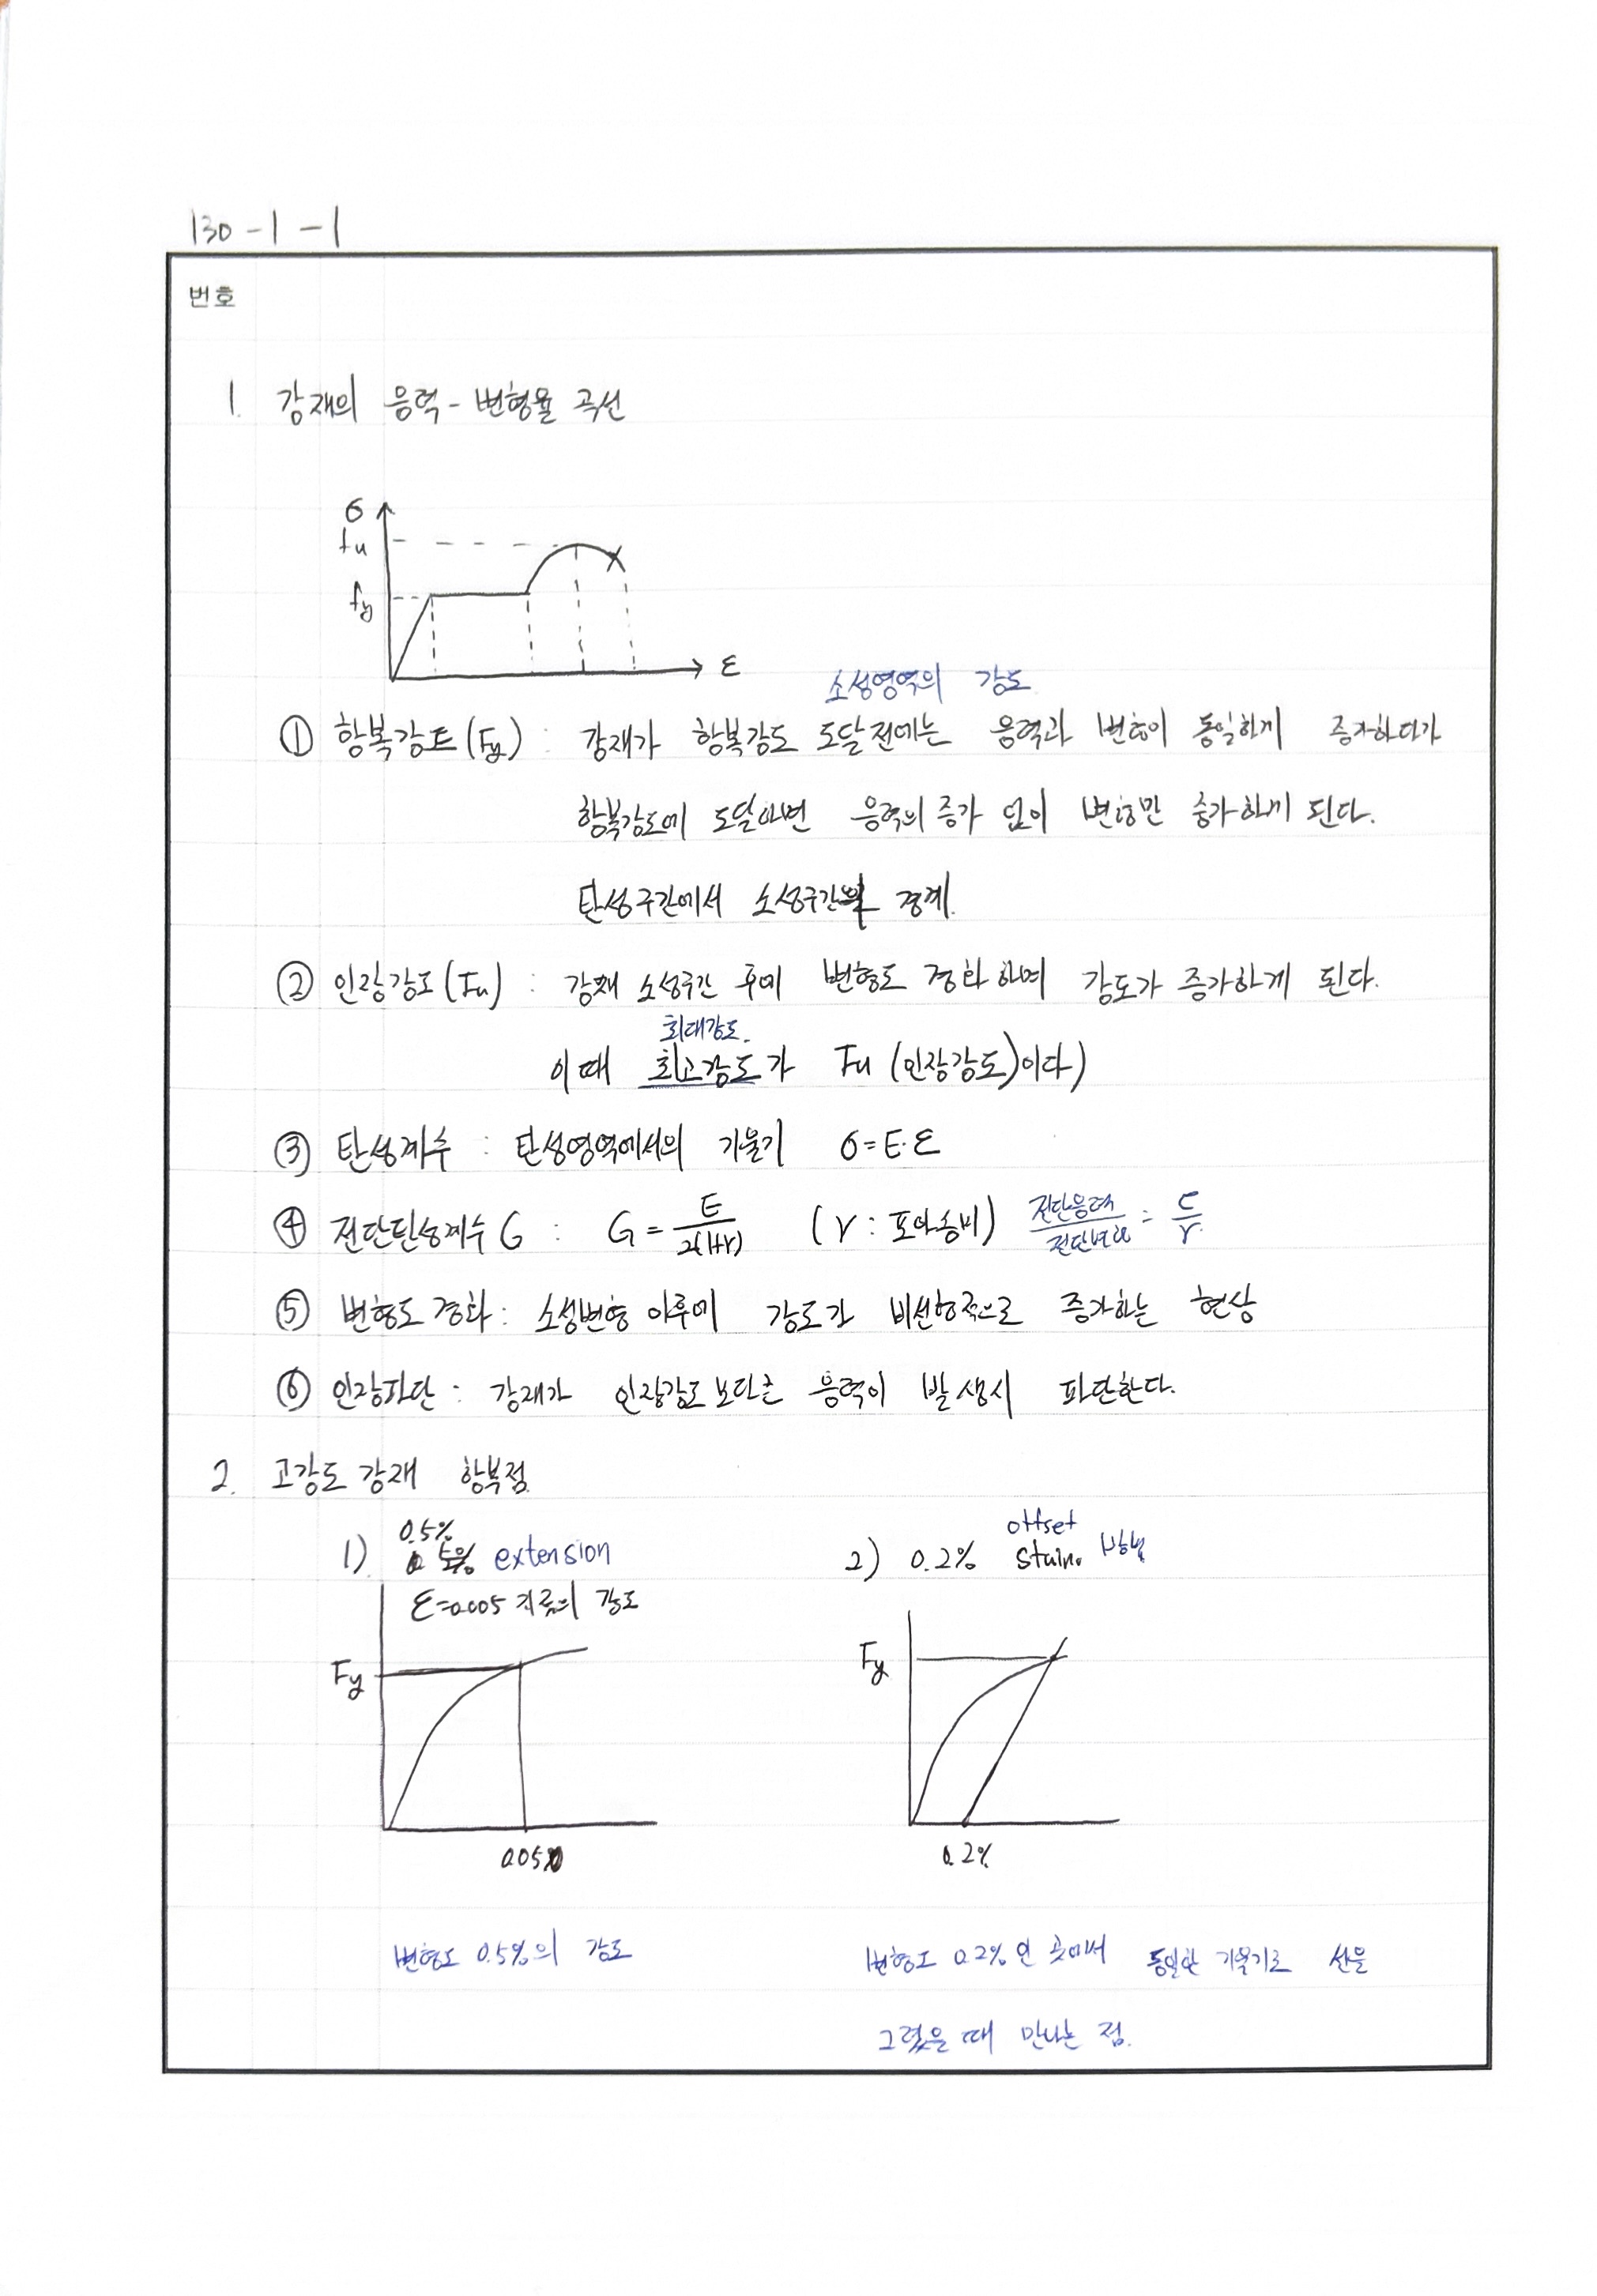 130-1-1
번호
1. 강재의 응력-변형율 곡선
σ
fu
fy
ε
소성영역의 강도
① 항복강도(Fy) : 강재가 항복강도 도달전에는 응력과 변형이 동일하게 증가하다가
항복강도에 도달하면 응력의 증가 없이 변형만 증가하게 된다.
탄성구간에서 소성구간의 경계.
② 인장강도(Fu) : 강재 소성구간 후에 변형도 경화하며 강도가 증가하게 된다.
최대강도.
이때 최고강도가 Fu (인장강도)이다)
③ 탄성계수 : 탄성영역에서의 기울기 σ=E·ε
④ 전단탄성계수 G : G = E/2(1+ν) (ν : 포아송비) 전단응력/전단변형 = τ/γ
⑤ 변형도 경화 : 소성변형 이후에 강도가 비선형적으로 증가하는 현상
⑥ 인장파단 : 강재가 인장강도보다큰 응력이 발생시 파단한다.
2. 고강도 강재 항복점
1) 0.5% extension
ε=0.005 지점의 강도
Fy
0.05
변형도 0.5%의 강도
offset
2) 0.2% stain. 방법
Fy
0.2%
변형도 0.2%인 곳에서 동일한 기울기로 선을
그렸을 때 만나는 점.